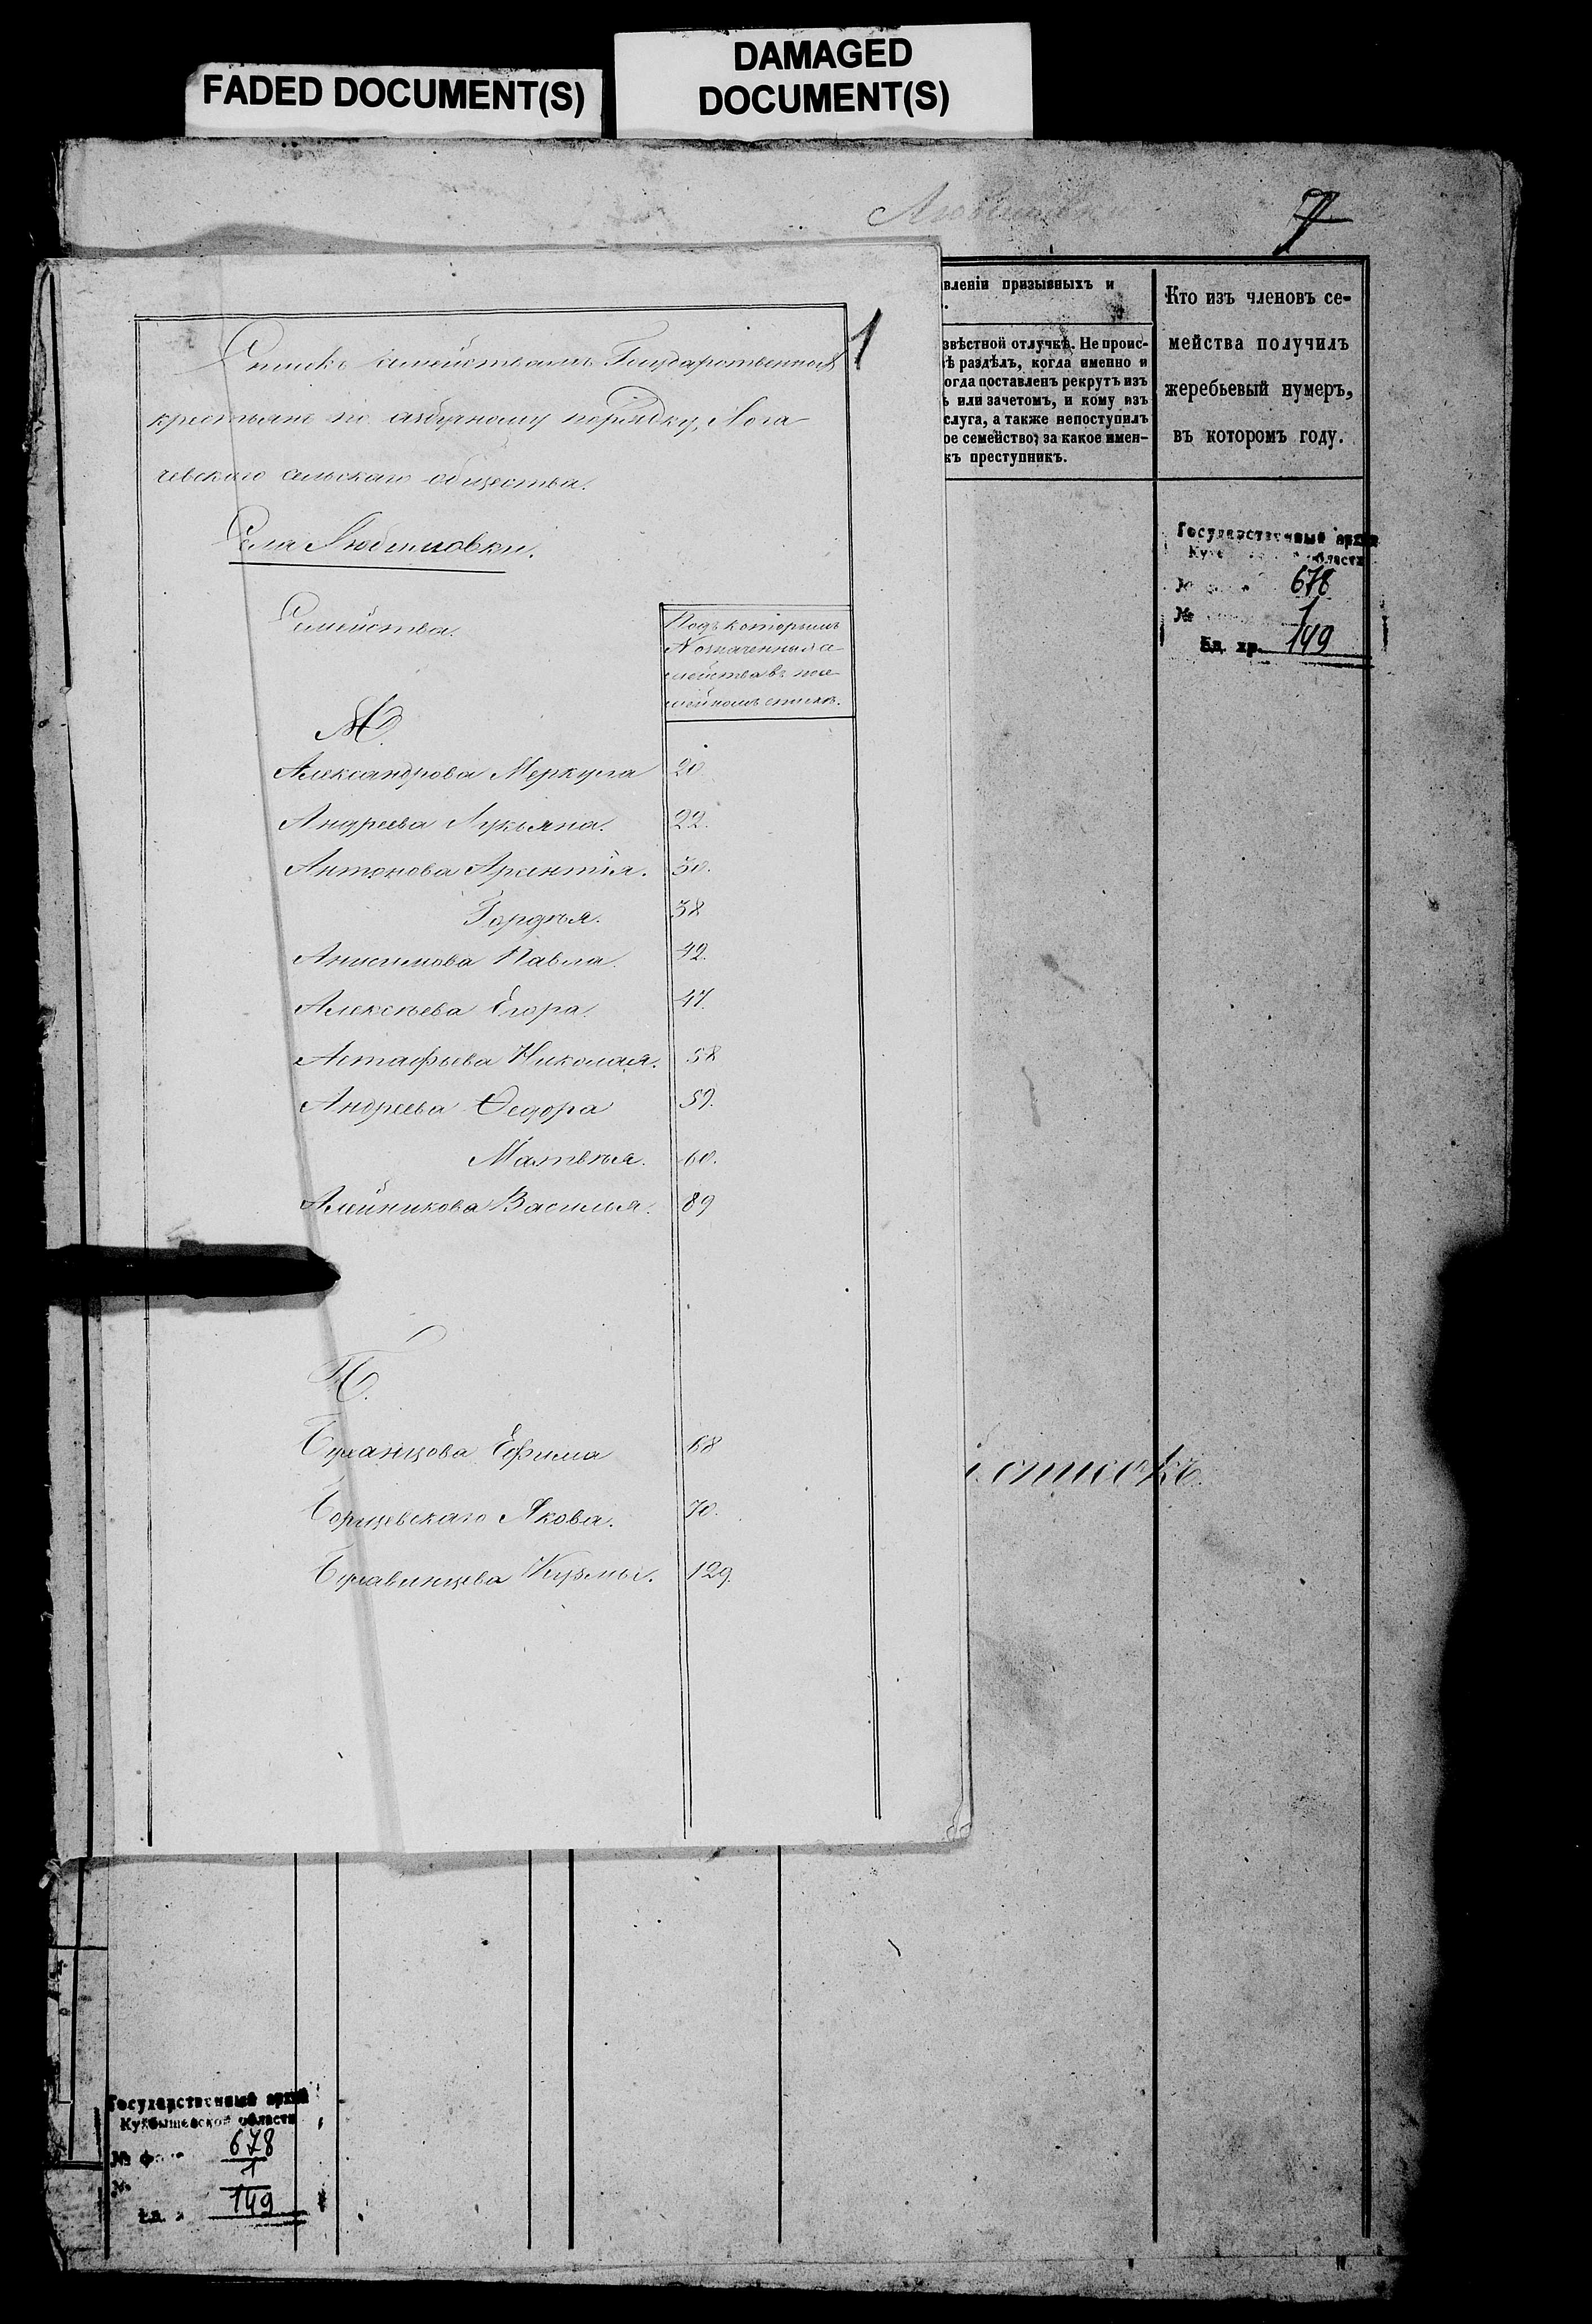 FADED DOCUMENT(S)
DAMAGED
DOCUMENT(S)
Любимовка
7
1
Списокъ семействамъ Государственныхъ
крестьянъ по азбучному порядку, Лога
чевскаго сельскаго общества.
Села Любимовки.
Семейства.
Подъ которымъ
№ означенныя се
мейства въ посе
мейномъ спискѣ.
А.
Александрова Меркула 20
Андреева Лукьяна. 22.
Антонова Арсентія. 30.
Гордѣя. 38
Анисимова Павла. 42.
Алексѣева Егора. 47.
Астафьева Николая. 58
Андреева Ѳедора 59.
Матвѣя. 60.
Алейникова Василья. 89
Б.
Буханцова Ефима 68
Борщевскаго Якова. 70.
Булавинцева Кузьмы. 129.
вленіи призывныхъ и
звѣстной отлучкѣ. Не проис-
ѣ раздѣлъ, когда именно и
огда поставленъ рекрутъ изъ
ъ или зачетомъ, и кому изъ
слуга, а также непоступилъ
ое семейство; за какое имен-
къ преступникъ.
Кто изъ членовъ се-
мейства получилъ
жеребьевый нумеръ,
въ которомъ году.
Государственный архив
области
№ 678
№ 1
Ед. хр. 149
й списокъ.
Государственный архив
Куйбышевской области
№ ф. 678
№ 1
Ед. 149